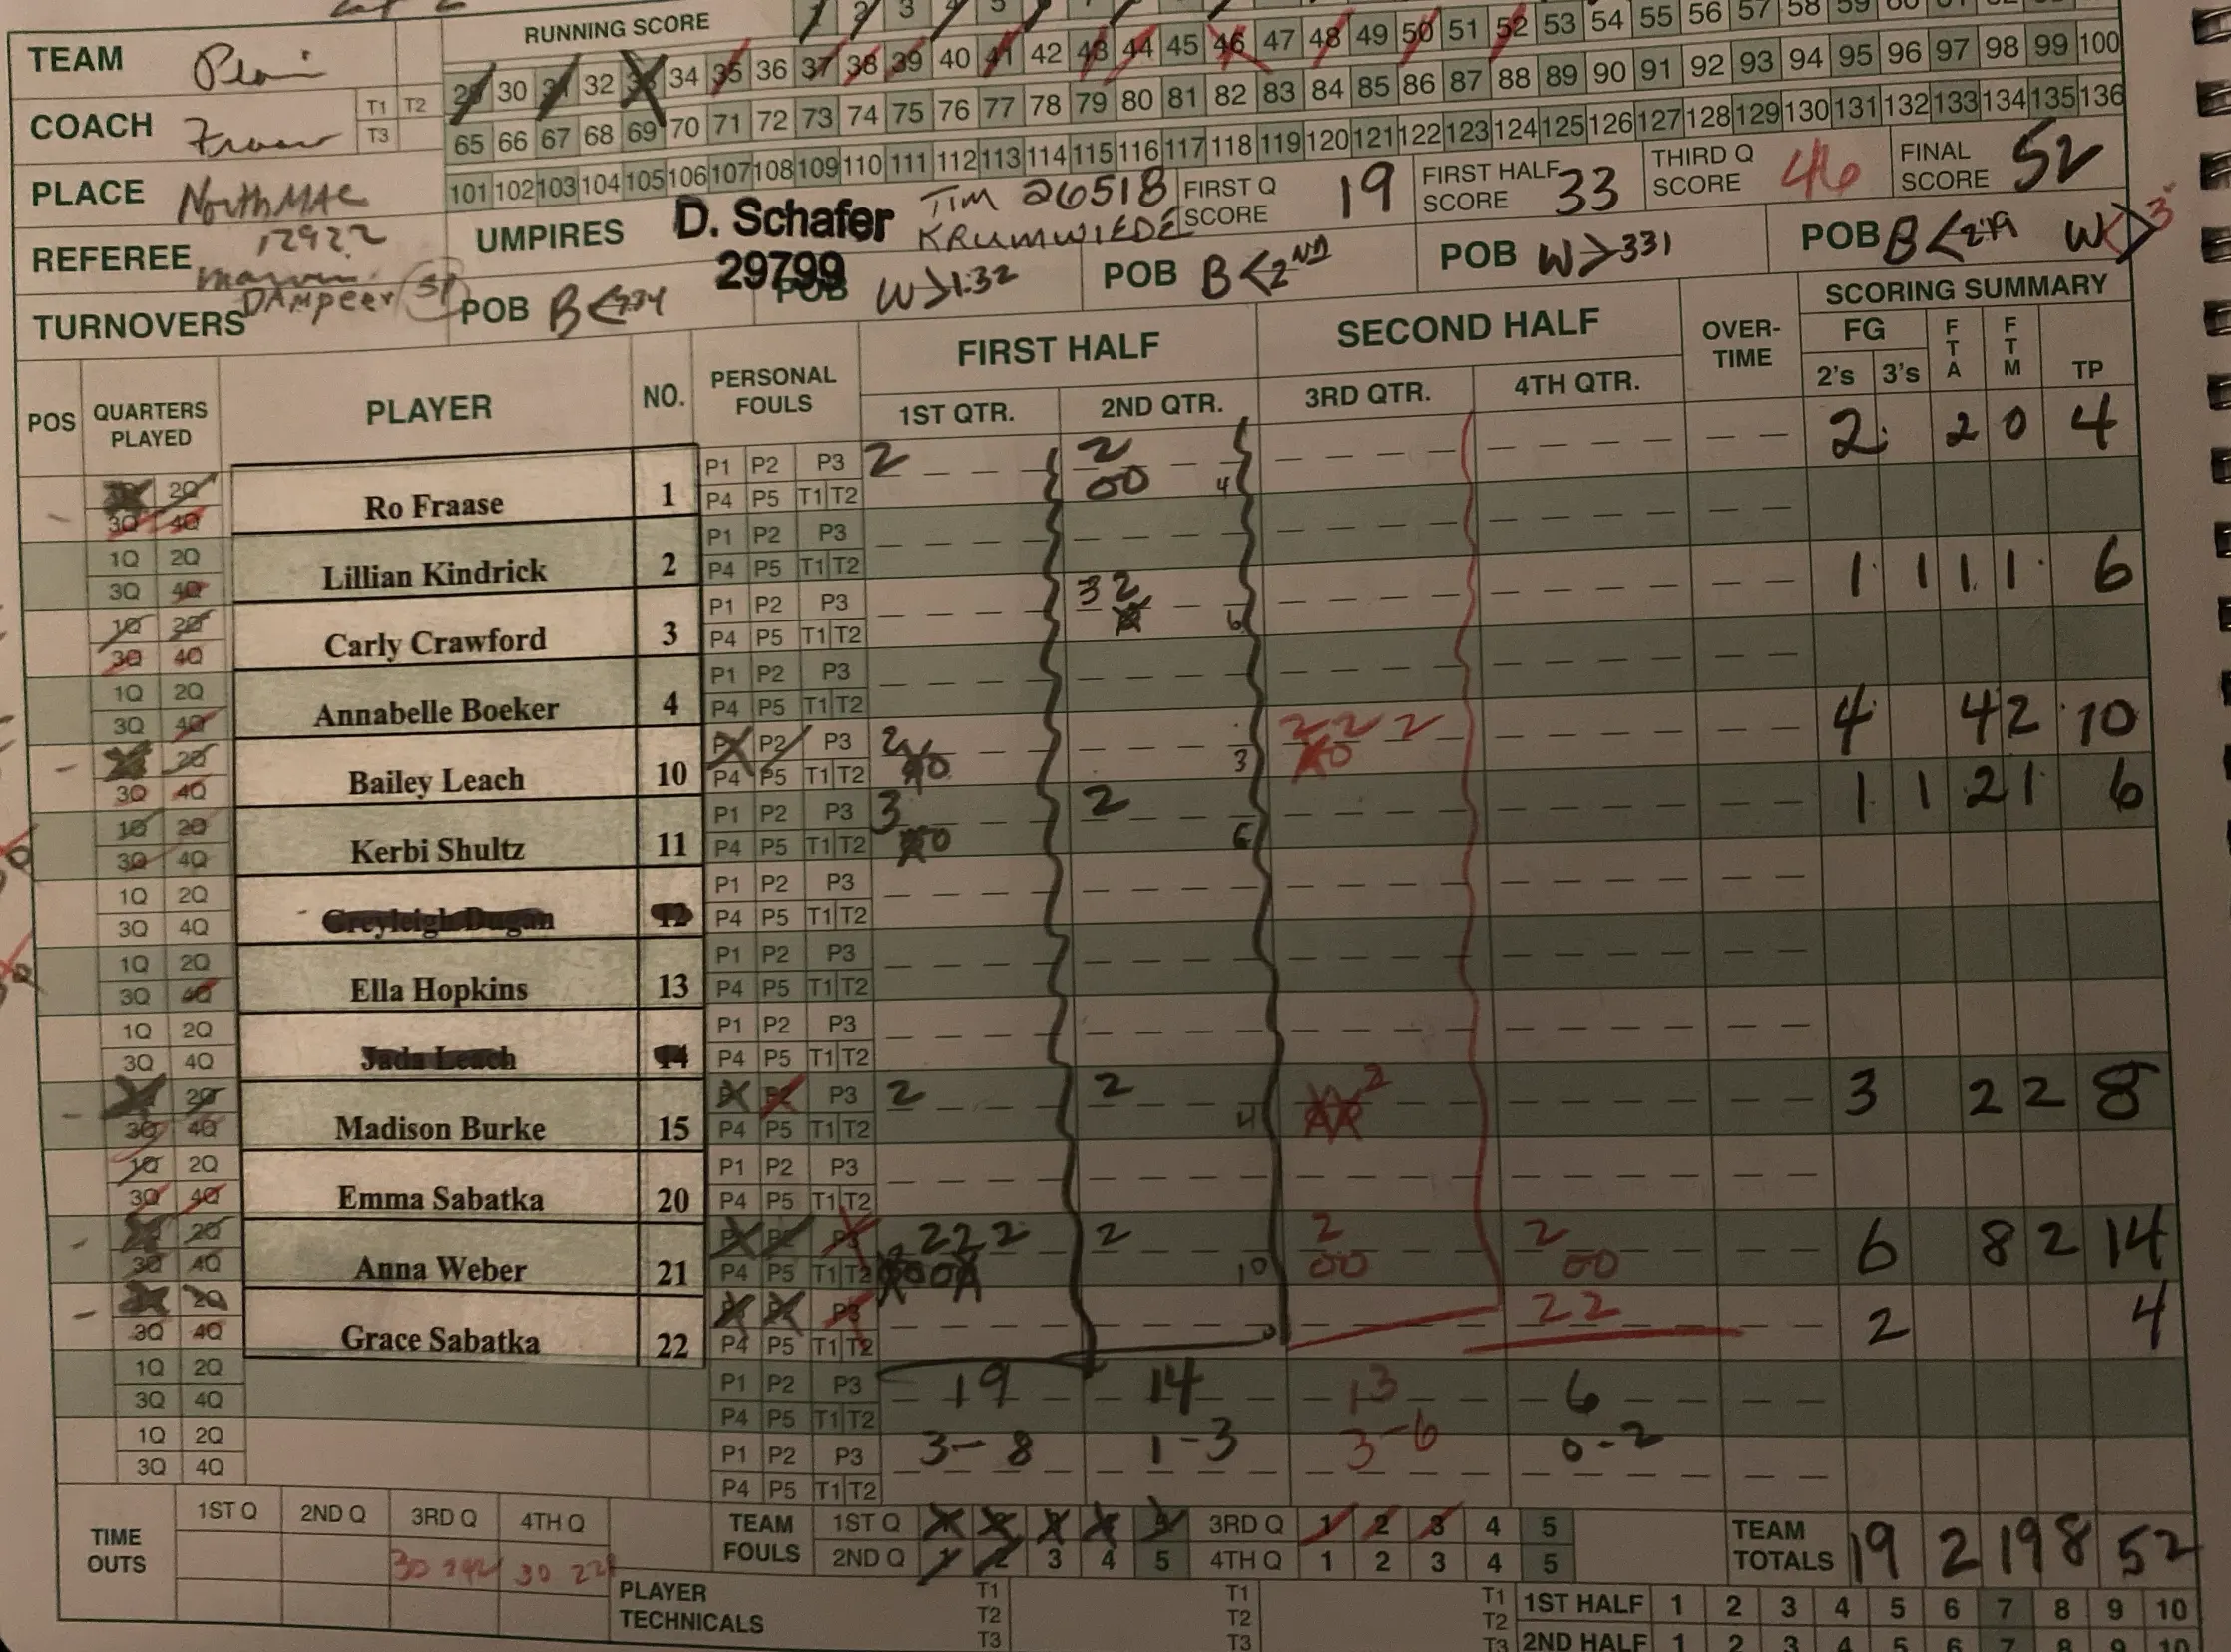 RUNNING SCORE 1 2 3 4 5
TEAM Plain 29 30 31 32 33 34 35 36 37 38 39 40 41 42 43 44 45 46 47 48 49 50 51 52 53 54 55 56 57 58 59
COACH T1 T2 T3 65 66 67 68 69 70 71 72 73 74 75 76 77 78 79 80 81 82 83 84 85 86 87 88 89 90 91 92 93 94 95 96 97 98 99 100
101 102 103 104 105 106 107 108 109 110 111 112 113 114 115 116 117 118 119 120 121 122 123 124 125 126 127 128 129 130 131 132 133 134 135 136
PLACE North MAC
REFEREE 12922 DAmpeer UMPIRES D. Schafer 29799 Tim 26518 KRUMWIEDE
FIRST Q SCORE 19 FIRST HALF SCORE 33 THIRD Q SCORE 46 FINAL SCORE 52
TURNOVERS POB B < POB W > 1:32 POB B < 2ND POB W > 331 POB B < 219 W > 3
POS QUARTERS PLAYED PLAYER NO. PERSONAL FOULS FIRST HALF SECOND HALF OVER-TIME SCORING SUMMARY
1ST QTR. 2ND QTR. 3RD QTR. 4TH QTR. FG 2's 3's FTA FTM TP
1Q 2Q 3Q 4Q Ro Fraase 1 P1 P2 P3 P4 P5 T1 T2 2 2 00 4 2 2 0 4
1Q 2Q 3Q 4Q Lillian Kindrick 2 P1 P2 P3 P4 P5 T1 T2
1Q 2Q 3Q 4Q Carly Crawford 3 P1 P2 P3 P4 P5 T1 T2 3 2 6 1 1 1 1 6
1Q 2Q 3Q 4Q Annabelle Boeker 4 P1 P2 P3 P4 P5 T1 T2
1Q 2Q 3Q 4Q Bailey Leach 10 P1 P2 P3 P4 P5 T1 T2 2 0 3 2 2 2 0 4 4 2 10
1Q 2Q 3Q 4Q Kerbi Shultz 11 P1 P2 P3 P4 P5 T1 T2 3 0 2 6 1 1 2 1 6
1Q 2Q 3Q 4Q Greyleigh Dugan 12 P1 P2 P3 P4 P5 T1 T2
1Q 2Q 3Q 4Q Ella Hopkins 13 P1 P2 P3 P4 P5 T1 T2
1Q 2Q 3Q 4Q Jada Leach 14 P1 P2 P3 P4 P5 T1 T2
1Q 2Q 3Q 4Q Madison Burke 15 P1 P2 P3 P4 P5 T1 T2 2 2 4 2 3 2 2 8
1Q 2Q 3Q 4Q Emma Sabatka 20 P1 P2 P3 P4 P5 T1 T2
1Q 2Q 3Q 4Q Anna Weber 21 P1 P2 P3 P4 P5 T1 T2 2 2 2 2 10 2 00 2 00 6 8 2 14
1Q 2Q 3Q 4Q Grace Sabatka 22 P1 P2 P3 P4 P5 T1 T2 2 2 2 4
1Q 2Q 3Q 4Q P1 P2 P3 P4 P5 T1 T2 19 14 13 6
1Q 2Q 3Q 4Q P1 P2 P3 P4 P5 T1 T2 3-8 1-3 3-6 0-2
TIME OUTS 1ST Q 2ND Q 3RD Q 4TH Q 30 30
TEAM FOULS 1ST Q 1 2 3 4 5 3RD Q 1 2 3 4 5
2ND Q 1 2 3 4 5 4TH Q 1 2 3 4 5
TEAM TOTALS 19 2 19 8 52
PLAYER TECHNICALS T1 T2 T3 T1 T2 T3 T1 T2 T3
1ST HALF 1 2 3 4 5 6 7 8 9 10
2ND HALF 1 2 3 4 5 6 7 8 9 10